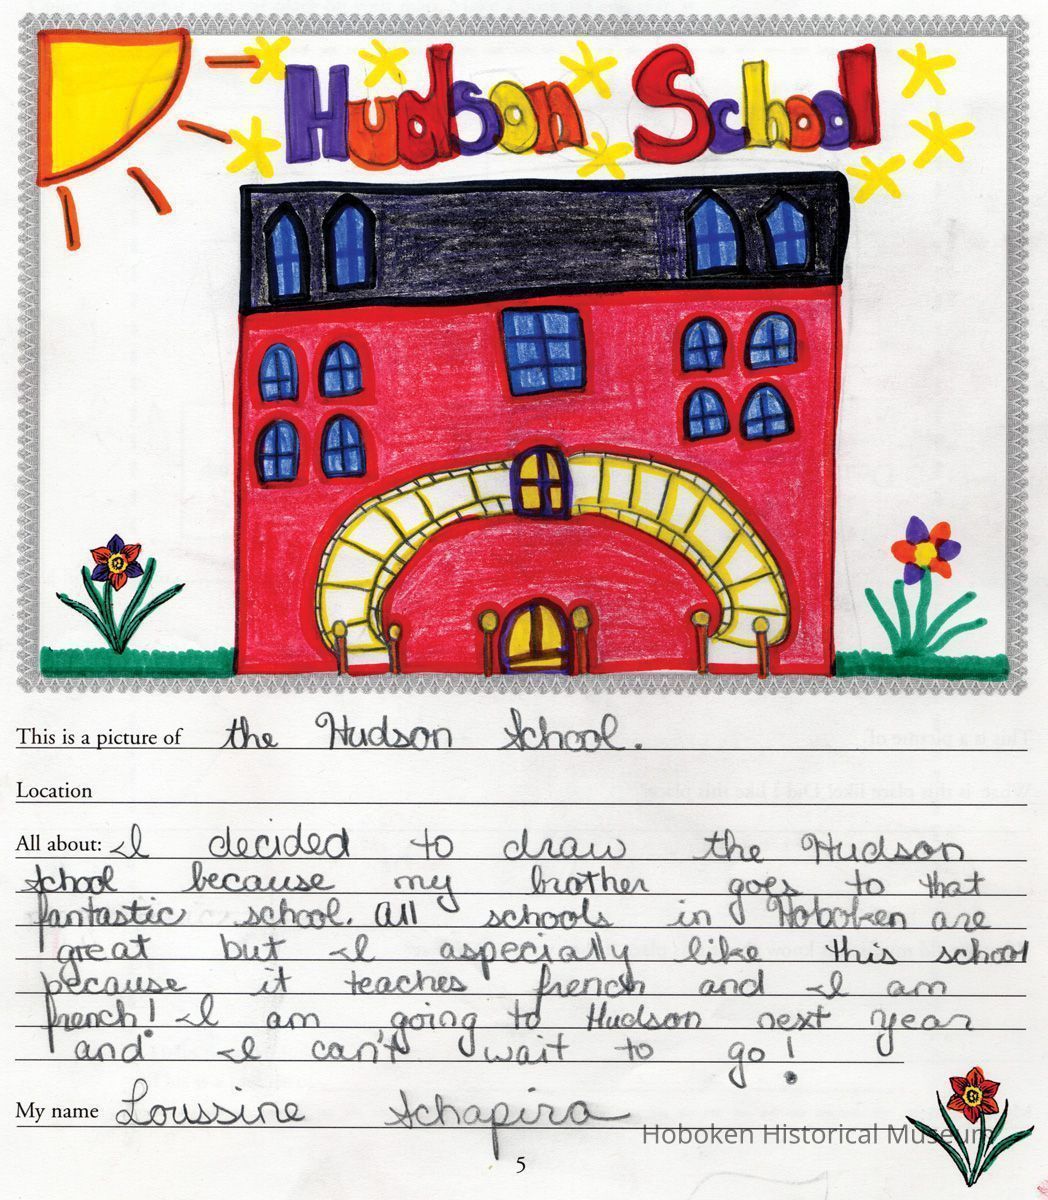 Hudson School
This is a picture of the Hudson School.
Location
All about: I decided to draw the Hudson
School because my brother goes to that
fantastic school. All schools in Hoboken are
great but I aspecially like this school
because it teaches french and I am
french! I am going to Hudson next year
and I can't wait to go!
My name Loussine Schapira
Hoboken Historical Museum
5